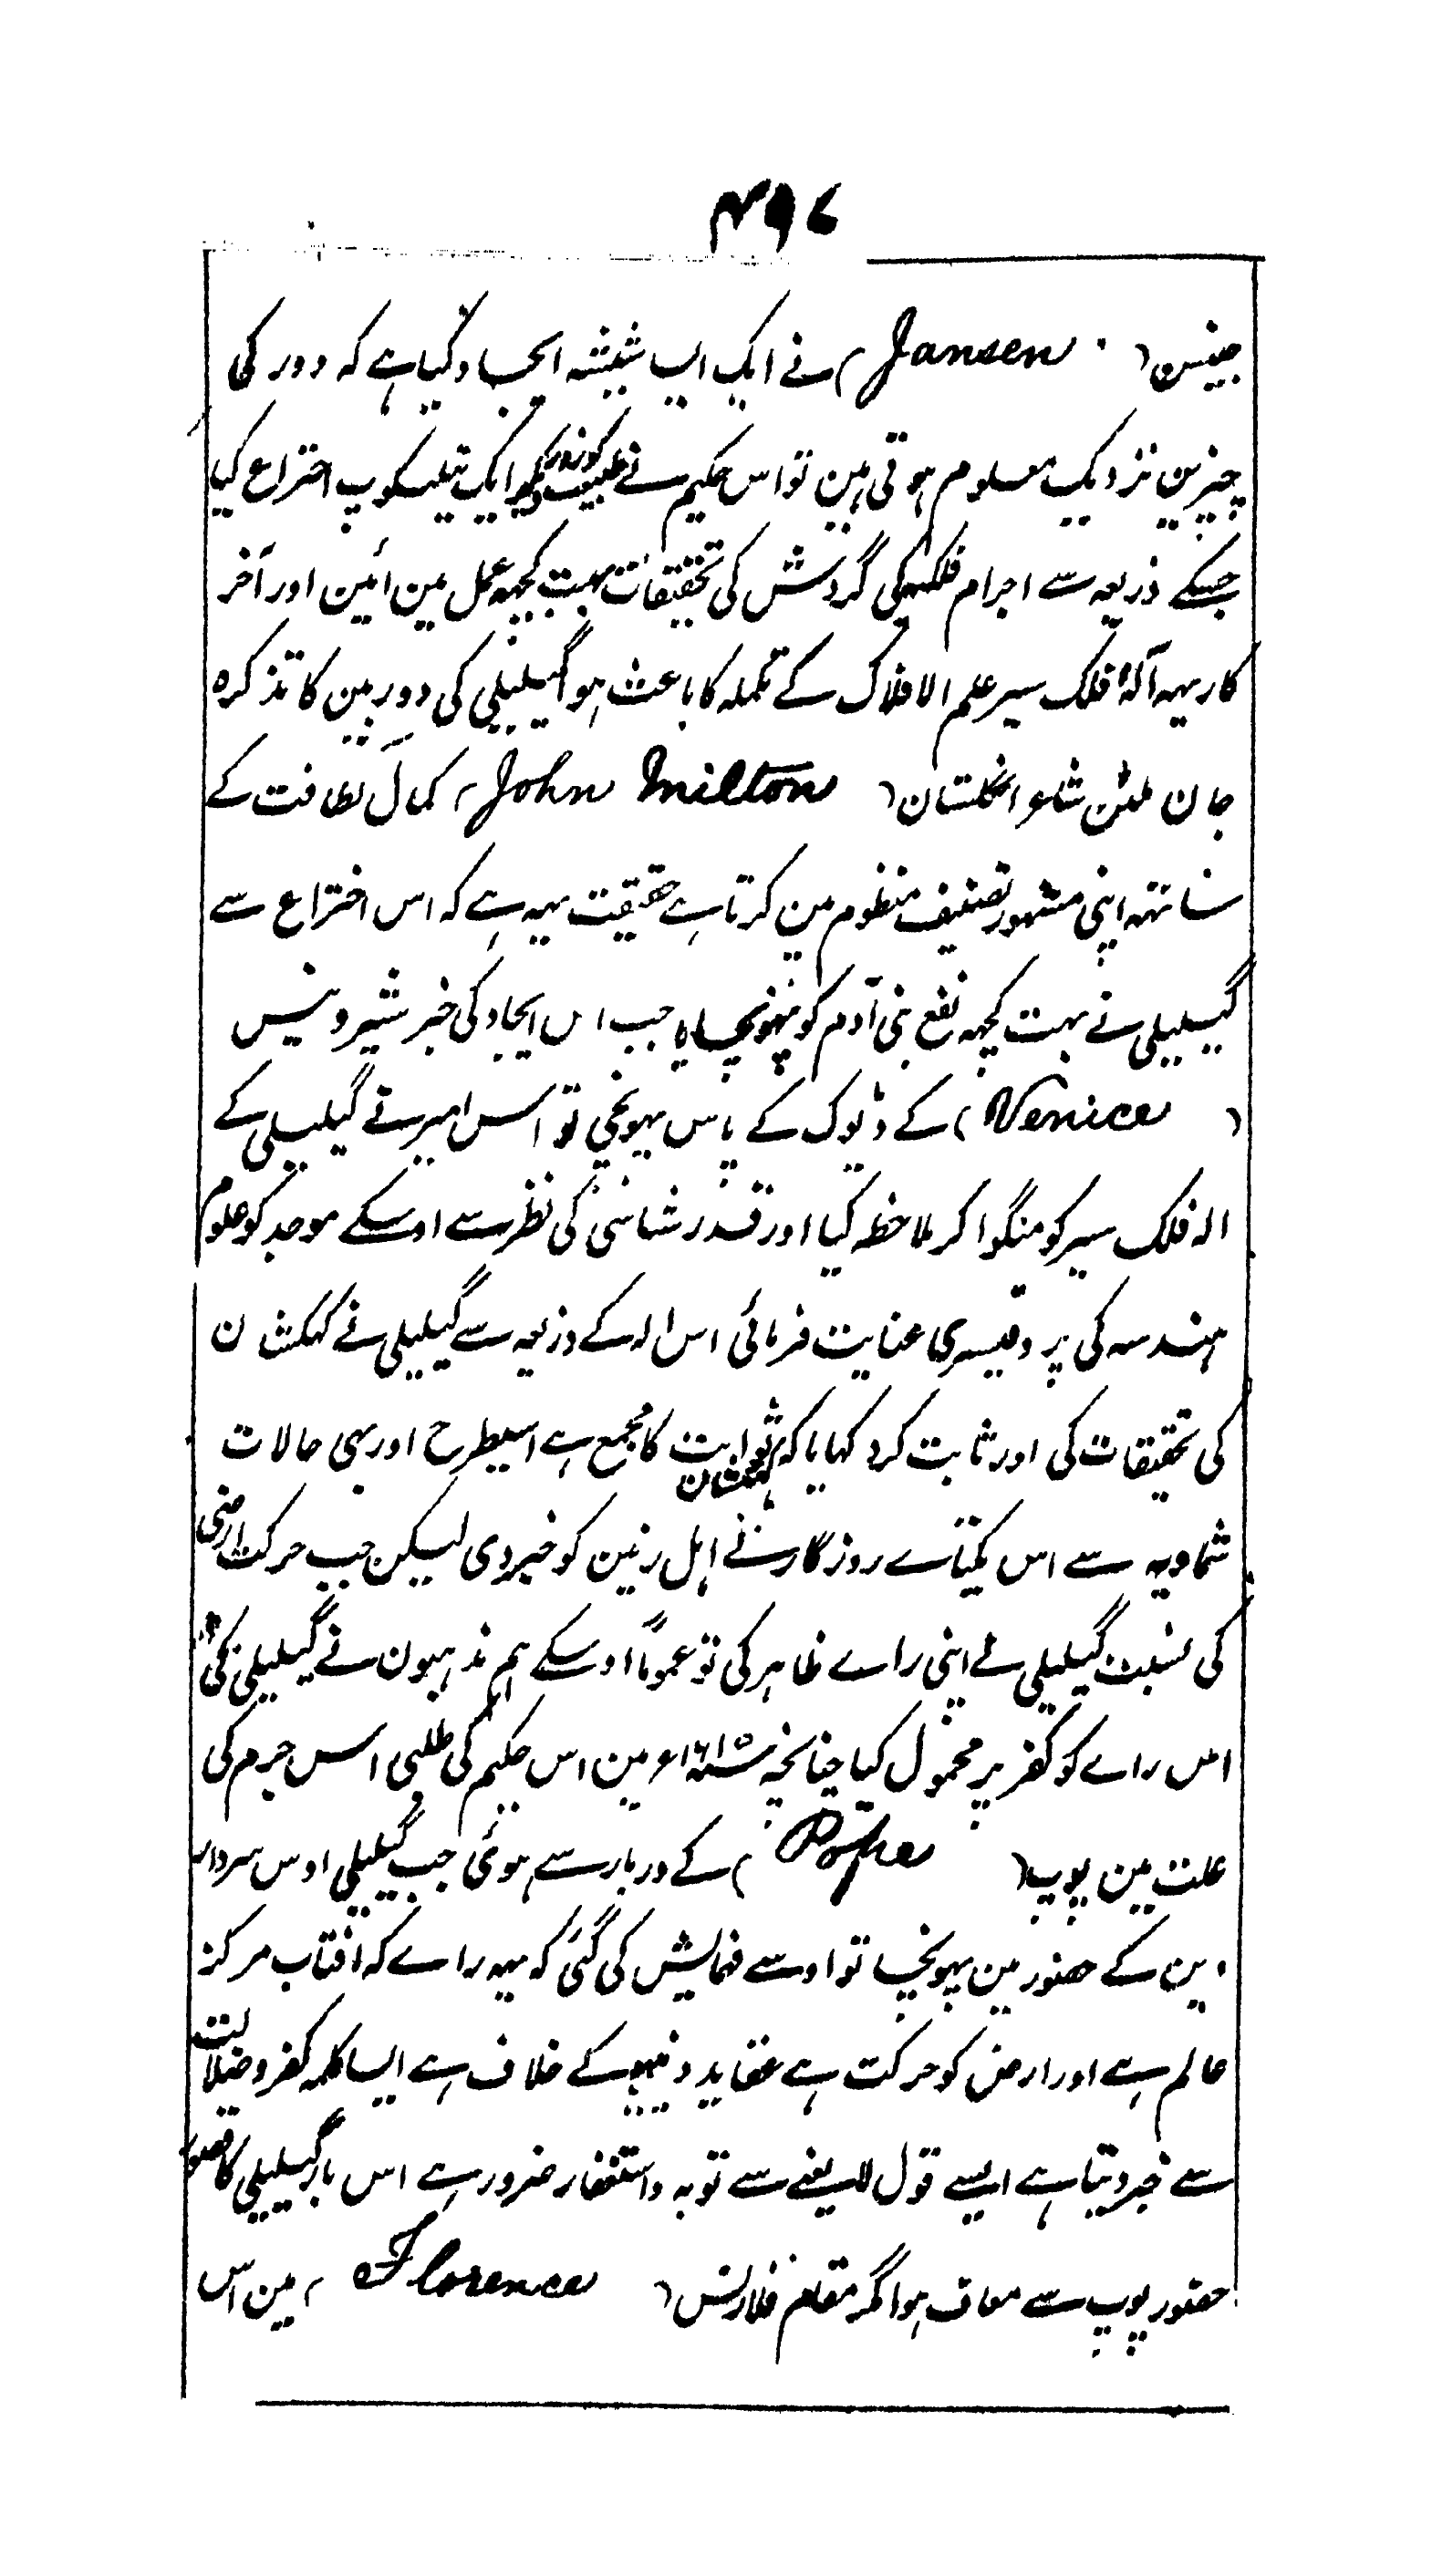 ۴۹۷
جینسن ( Jansen ) نے ایک ایسا شیشہ ایجاد کیا ہے کہ دور کی
چیزین نزدیک معلوم ہوتی ہین تو اس حکیم نے طبیعت کو زور دیکر ایک تیلسکوپ اختراع کیا
جسکے ذریعہ سے اجرام فلکیہ کی گردش کی تحقیقات بہت کچہہ عمل مین آئین اور آخر
کار یہہ آلۂ فلک سیر علم الافلاک کے تکملہ کا باعث ہوا گیلیلی کی دوربین کا تذکرہ
جان ملٹن شاعر انگلستان ( John Milton ) کمال لطافت کے
ساتہہ اپنی مشہور تصنیف منظوم مین کرتا ہے حقیقت یہہ ہے کہ اس اختراع سے
گیلیلی نے بہت کچہہ نفع بنی آدم کو پہونچایا جب اس ایجاد کی خبر شہر وینس
( Venice ) کے ڈیوک کے پاس پہونچی تو اس امیر نے گیلیلی کے
الہ فلک سیر کو منگوا کر ملاحظہ کیا اور قدر شناسی کی نظر سے اوسکے موجد کو علوم
ہندسہ کی پروفیسری عنایت فرمائی اس الہ کے ذریعہ سے گیلیلی نے کہکشان
کی تحقیقات کی اور ثابت کر دکہایا کہ کہکشان ثوابت کا مجمع ہے اسیطرح اور بہی حالات
سماویہ سے اس یکتاے روزگار نے اہل زمین کو خبر دی لیکن جب حرکت ارضی
کی نسبت گیلیلی نے اپنی راے ظاہر کی تو عموماً اوسکے ہم مذہبون نے گیلیلی کی
اس راے کو کفر پر محمول کیا چنانچہ سنہ ۱۶۱۵ء مین اس حکیم کی طلبی اس جرم کی
علت مین پوپ ( Pope ) کے دربار سے ہوئی جب گیلیلی اوس سردار
دین کے حضور مین پہونچا تو اوسے فہمایش کی گئی کہ یہہ راے کہ افتاب مرکز
عالم ہے اور ارض کو حرکت ہے عقاید دینیہ کے خلاف ہے ایسا کلمہ کفر و ضلالت
سے خبر دیتا ہے ایسے قول لایعنے سے توبہ و استغفار ضرور ہے اس بار گیلیلی کا قصور
حضور پوپ سے معاف ہوا مگر مقام فلارنس ( Florence ) مین اس